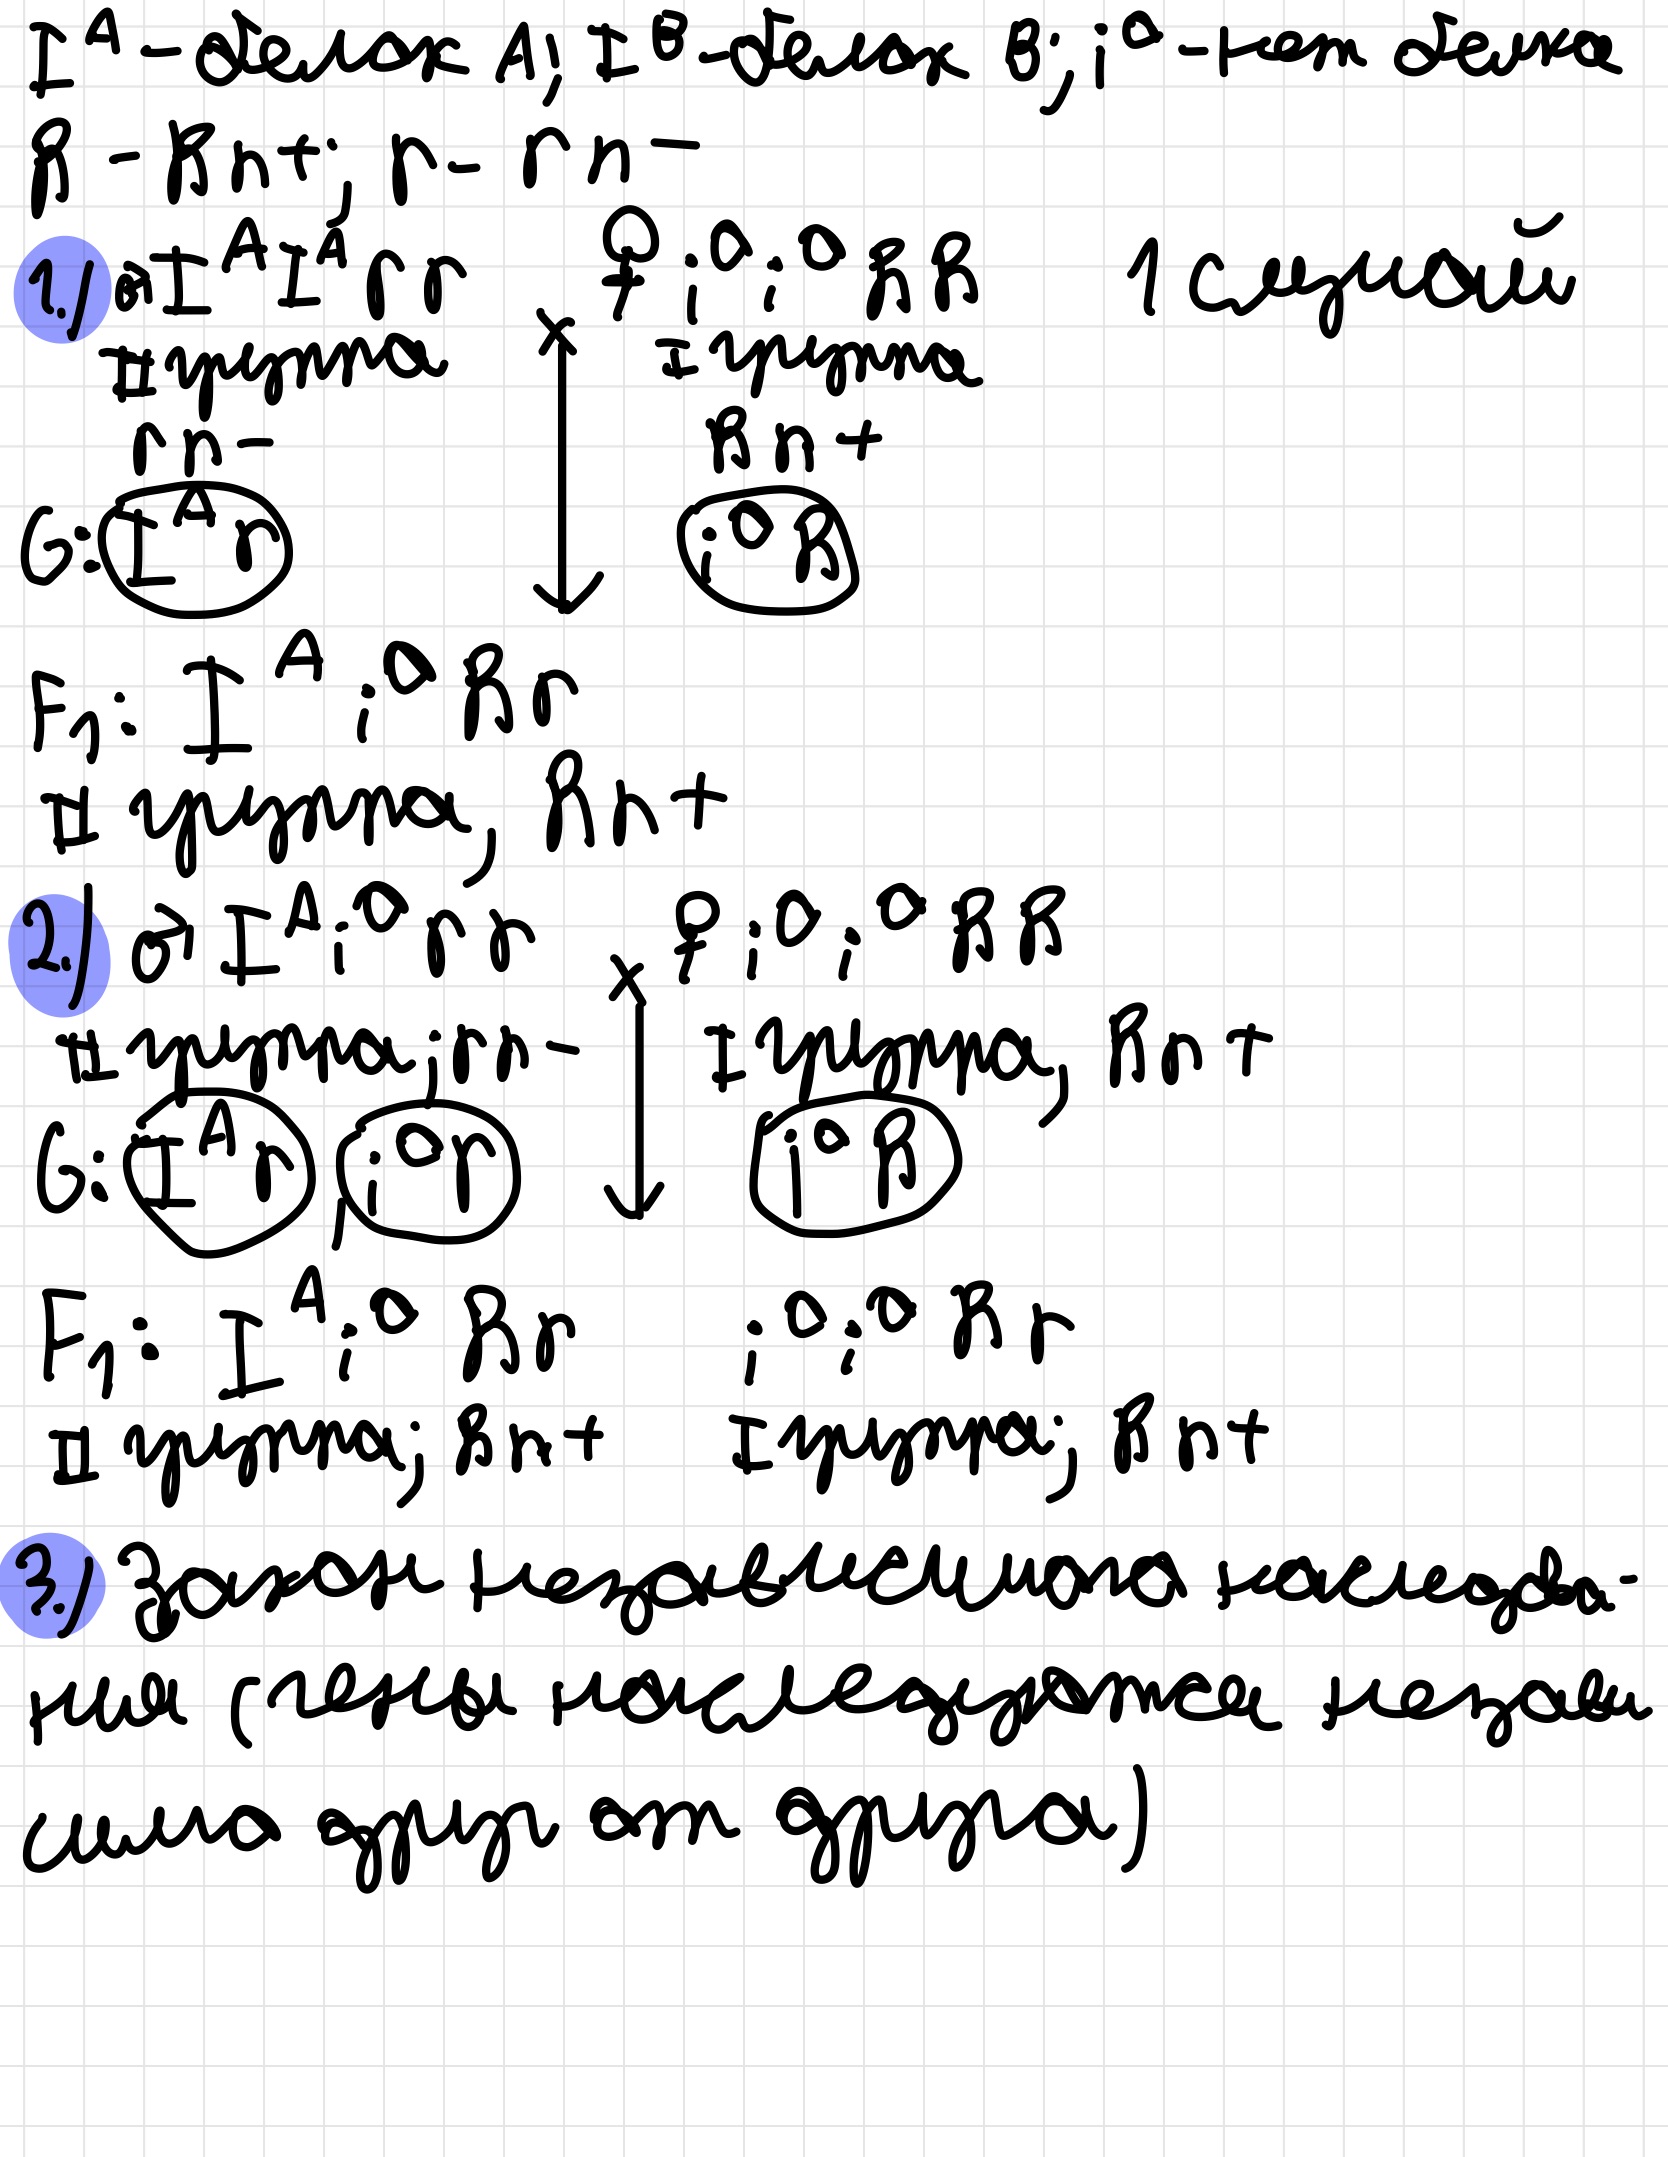 I^A - белок A; I^B - белок B; i^0 - нет белка
R - Rh+; r - rh-
1.) ♂ I^A I^A rr × ♀ i^0 i^0 RR 1 случай
II группа I группа
rh- Rh+
G: I^A r i^0 R
F1: I^A i^0 Rr
II группа, Rh+
2.) ♂ I^A i^0 rr × ♀ i^0 i^0 RR
II группа; rh- I группа, Rh+
G: I^A r , i^0 r i^0 R
F1: I^A i^0 Rr i^0 i^0 Rr
II группа; Rh+ I группа; Rh+
3.) Закон независимого наследова-
ния (гены наследуются незави
симо друг от друга)